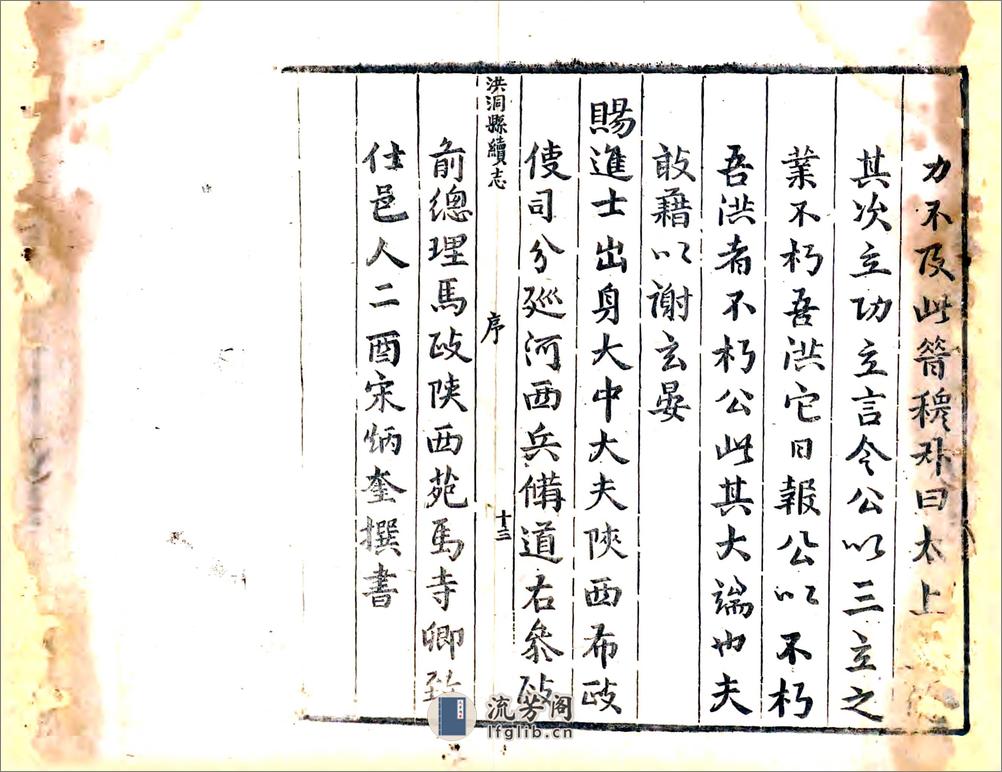 力不及此
曰太上
其次立功立言今公以三立之
業不朽吾洪它日報公以不朽
吾洪者不朽公此其大端也夫
敢藉以謝玄晏
賜進士出身大中大夫陝西布政
使司分廵河西兵備道右參政
洪洞縣續志
序
十三
前總理馬政陝西苑馬寺卿致
仕邑人二酉宋炳奎撰書
流芳阁
lfglib.cn